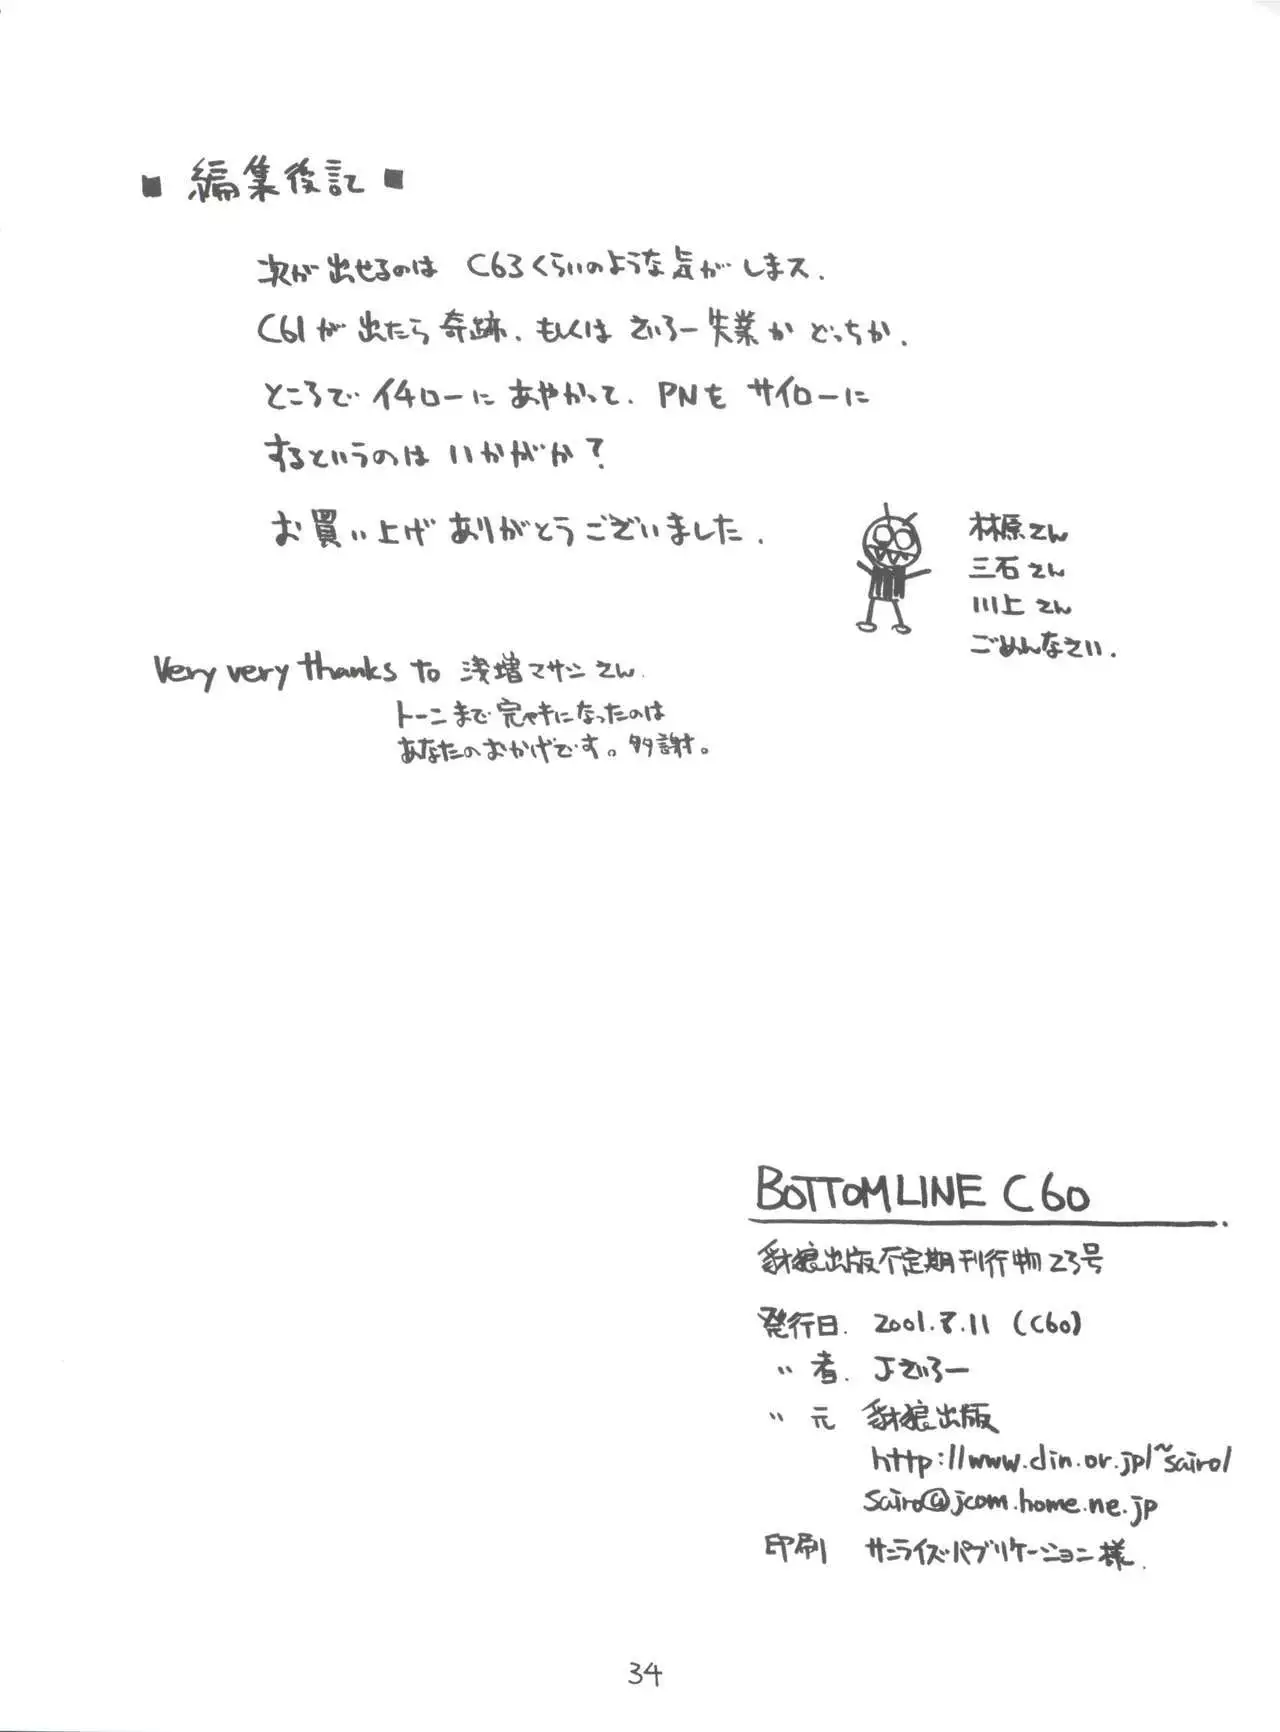 ■ 編集後記 ■
次が出せるのは C63くらいのような気がしまス.
C61が出たら奇跡. もしくは さいろー失業か どっちか.
ところで イチローに あやかって. PNも サイローに
するというのは いかがか?
お買い上げ ありがとうございました.
林原さん
三石さん
川上さん
ごめんなさい.
Very very thanks to 浅増マサシさん.
トーンまで完ペキになったのは
あなたのおかげです。多謝。
BOTTOM LINE C60
豺狼出版不定期刊行物23号
発行日. 2001.8.11 (C60)
〃 者. Jさいろー
〃 元 豺狼出版
http://www.din.or.jp/~sairo/
sairo@jcom.home.ne.jp
印刷 サンライズパブリケーション様.
34